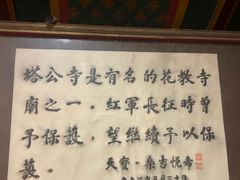 塔公寺是有名的花教寺
廟之一。紅軍長征時曾
予保護，望繼續予以保
護。
天寶·桑吉悦希